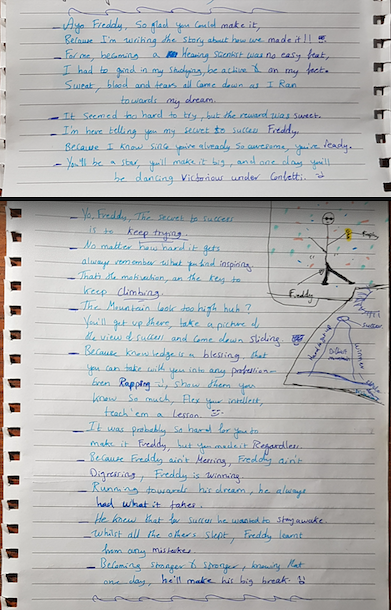 Ayo Freddy, So glad you could make it,
Because I'm writing the story about how we made it!!
For me, becoming a Hearing Scientist was no easy feat,
I had to grind in my studying, be active & on my feet.
Sweat, blood and tears all came down as I Ran
towards my dream.
It Seemed too hard to try, but the reward was sweet.
I'm here telling you my secret to success Freddy.
Because I know since you're already so awesome, you're ready.
You'll be a star, you'll make it big, and one day you'll
be dancing Victorious under Confetti.
Yo, Freddy, The secret to success
is to Keep trying.
No matter how hard it gets
always remember what you find inspiring.
That's the motivation, on the Key to
Keep Climbing.
The Mountain look too high huh?
You'll get up there, take a picture of
the view of success and come down sliding.
Because knowledge is a blessing that
you can take with you into any profession—
Even Rapping :), show them you
know So much, Flex your intellect,
teach 'em a Lesson.
It was probably so hard for you to
make it Freddy, but you made it Regardless.
Because Freddy ain't Messing, Freddy ain't
Digressing, Freddy is winning.
Running towards his dream, he always
had what it takes.
He knew that for success he wanted to stay awake.
Whilst all the others slept, Freddy learns
from any mistakes.
Becoming stronger & stronger, knowing that
one day, he'll make his big break.
Freddy